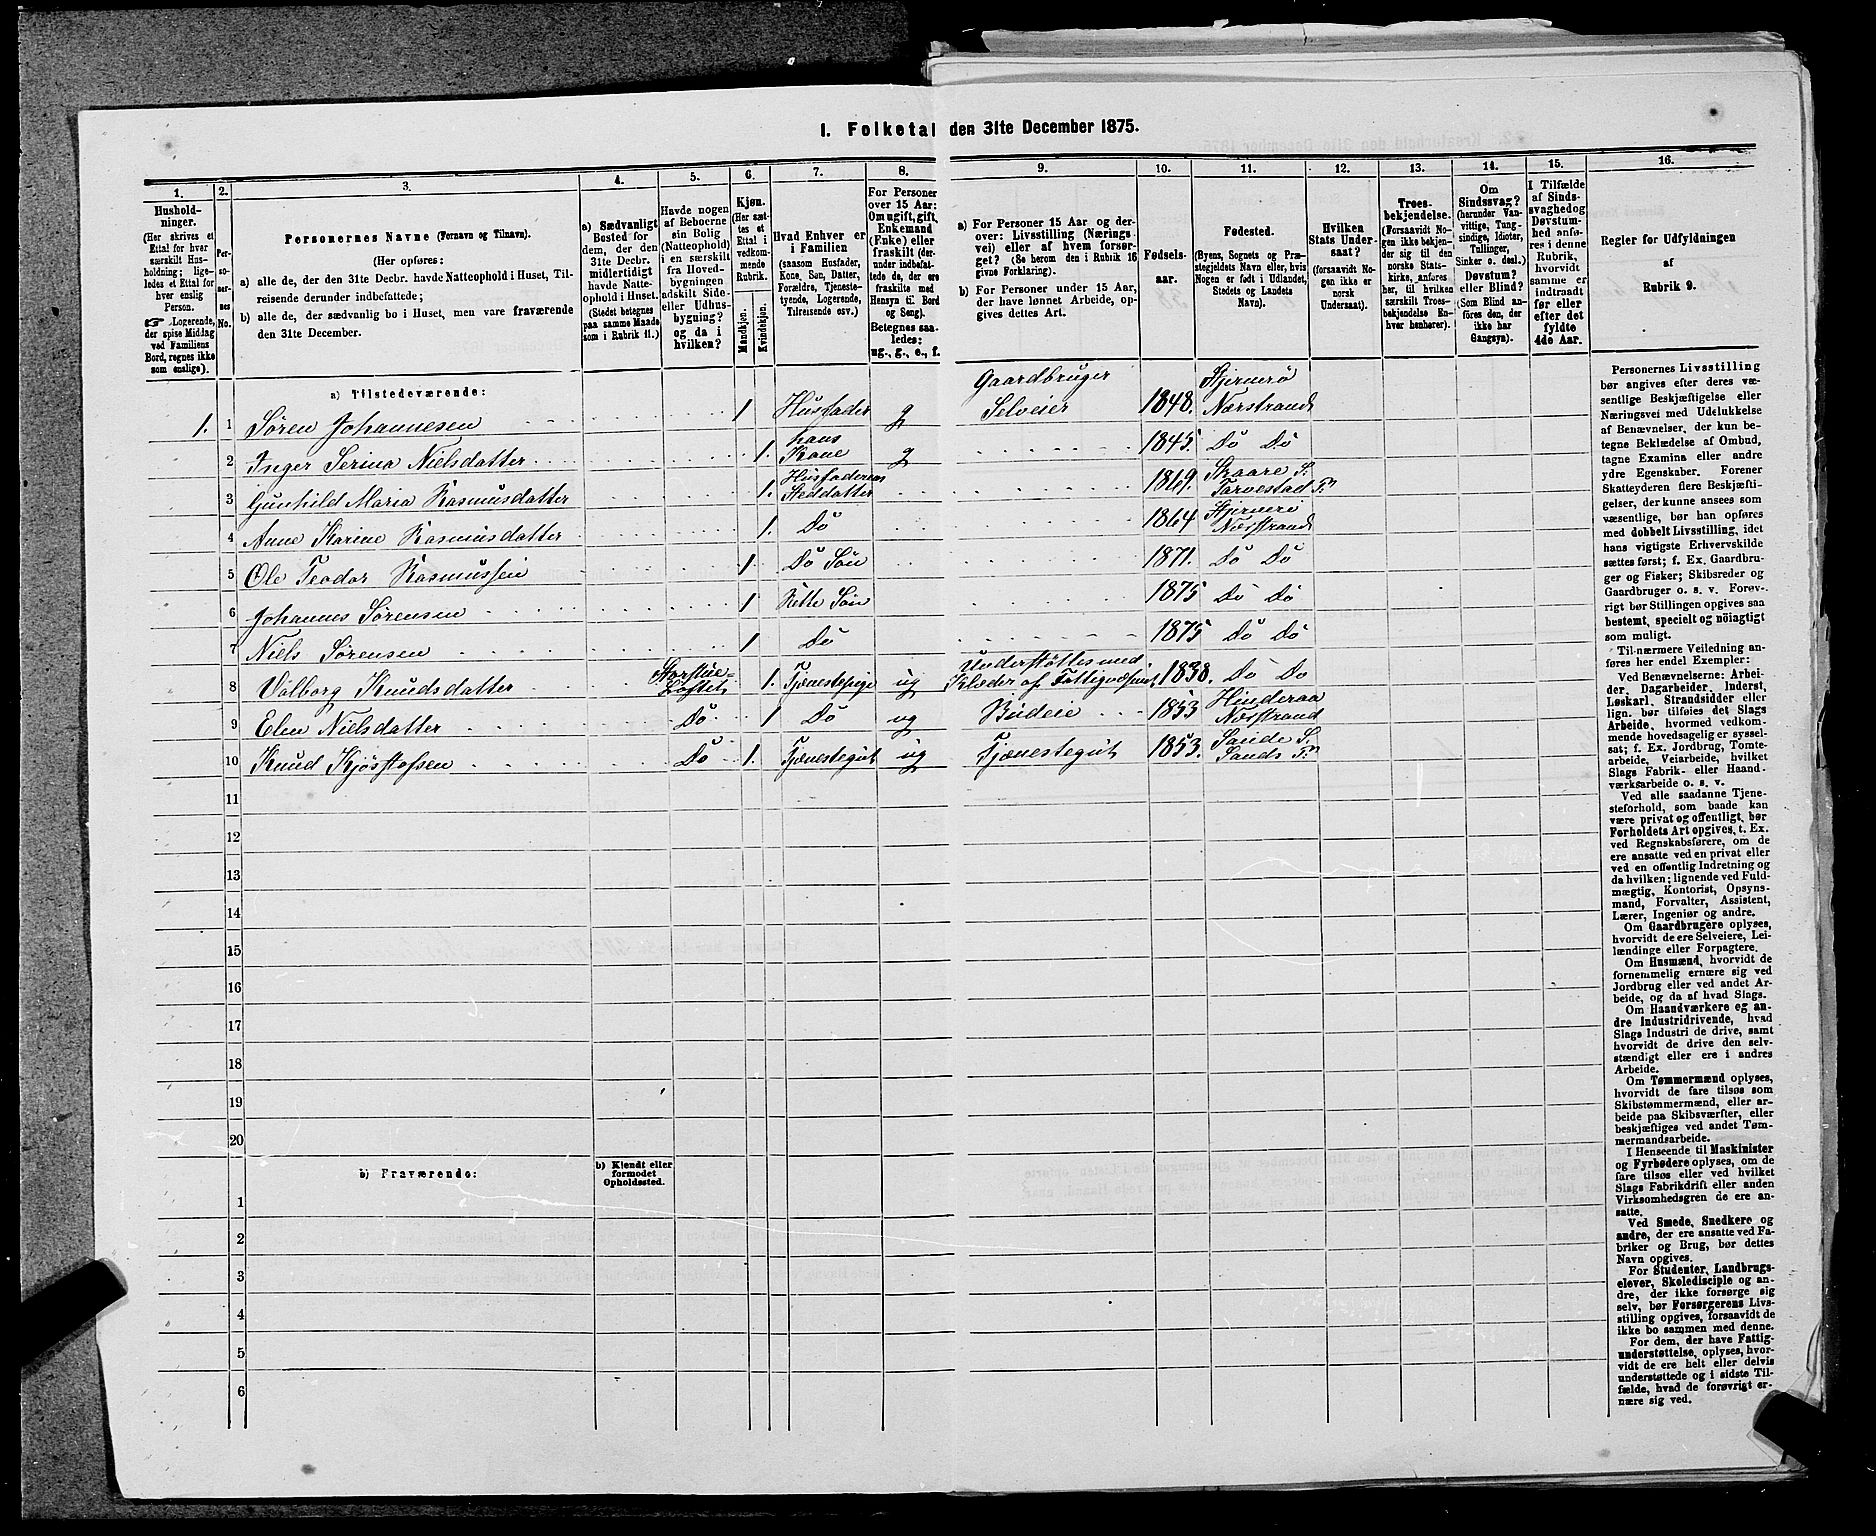 I. Folketal den 31te December 1875.
1. 2. 3. 4. 5. 6. 7. 8. 9. 10. 11. 12. 13. 14. 15. 16.
Hushold-
ninger.
(Her skrives et
Ettal for hver
særskilt Hus-
holdning; lige-
ledes et Ettal for
hver enslig
Person.
☞ Logerende,
der spise Middag
ved Familiens
Bord, regnes ikke
som enslige).
Per-
so-
ner-
nes
No.
Personernes Navne (Fornavn og Tilnavn).
(Her opføres:
a) alle de, der den 31te Decbr. havde Natteophold i Huset, Til-
reisende derunder indbefattede;
b) alle de, der sædvanlig bo i Huset, men vare fraværende
den 31te December.
a) Sædvanligt
Bosted for
dem, der den
31te Decbr.
midlertidigt
havde Natte-
ophold i Huset.
(Stedet betegnes
paa samme Maade
som i Rubrik 11.)
Havde nogen
af Beboerne
sin Bolig
(Natteophold)
i en særskilt
fra Hoved-
bygningen
adskilt Side-
eller Udhus-
bygning?
og da i
hvilken?
Kjøn.
(Her sæt-
tes et
Ettal i
vedkom-
mende
Rubrik.
Mandkjøn.
Kvindekjøn.
Hvad Enhver er
i Familien
(saasom Husfader,
Kone, Søn, Datter,
Forældre, Tjeneste-
tyende, Logerende,
Tilreisende osv.)
For Personer
over 15 Aar:
Om ugift, gift,
Enkemand
(Enke) eller
fraskilt (der-
under indbefat-
tede de, der ere
fraskilte med
Hensyn til Bord
og Seng).
Betegnes saa-
ledes:
ug., g., e., f.
a) For Personer 15 Aar og der-
over: Livsstilling (Nærings
vei) eller af hvem forsør-
get? (Se herom den i Rubrik 16
givne Forklaring).
b) For Personer under 15 Aar,
der have lønnet Arbeide, op-
gives dettes Art.
Fødsels-
aar.
Fødested.
(Byens, Sognets og Præ-
stegjeldets Navn eller, hvis
Nogen er født i Udlandet,
Stedets og Landets
Navn).
Hvilken
Stats Under-
saat?
(forsaavidt No-
gen ikke er
norsk
Undersaat).
Troes-
bekjendelse.
(Forsaavidt No-
gen ikke bekjen-
der sig til den
norske Stats-
kirke, anføres
her, til hvilken
særskilt Troes-
bekjendelse En-
hver henhører).
Om
Sindssvag?
(herunder Van-
vittige, Tung-
sindige, Idioter,
Tullinger,
Sinker o. desl.)
Døvstum?
eller Blind?
(Som Blind an-
føres den, der
ikke har
Gangsyn).
I Tilfælde
af Sinds-
svaghed og
Døvstum-
hed anfø-
res i denne
Rubrik,
hvorvidt
samme er
indtraadt
før eller
efter det
fyldte
4de Aar.
Regler for Udfyldningen
af
Rubrik 9.
a) Tilstedeværende:
1. 1 Søren Johannesen 1 Husfader g Gaardbruger Selveier 1848. Hjernerö Nærstrand
2 Inger Serina Nielsdatter 1. hans Kone g 1845. Do Do
3 Gunhild Maria Rasmusdatter 1. Husfaderens Steddatter 1869. Skaare S. Torvestad P.
4 Anne Karine Rasmusdatter 1. Do 1864 Nærstrand
5 Ole Teodor Rasmussen 1 Do Sön 1871. Do Do
6 Johannes Sørensen 1 Rette Sön 1875 Do Do
7 Niels Sørensen 1 Do 1875 Do Do
8 Valborg Knudsdatter 1. Tjenestepige ug Understöttes med Klæder af Fattigvæsnet 1838. Do Do
9 Elen Nielsdatter Do 1 Do ug Budeie 1853 Hinderaa Nærstrand
10 Knud Kjøstofsen Do 1. Tjenestegut ug Tjenestegut 1853. Sande S. Sands P.
11
12
13
14
15
16
17
18
19
20
b) Fraværende:
b) Kjendt eller
formodet
Opholdssted.
1
2
3
4
5
6
Personernes Livsstilling
bør angives efter deres væ-
sentlige Beskjæftigelse eller
Næringsvei med Udelukkelse
af Benævnelser, der kun be-
tegne Beklædelse af Ombud,
tagne Examina eller andre
ydre Egenskaber. Forener
Skatteyderen flere Beskjæfti-
gelser, der kunne ansees som
væsentlige, bør han opføres
med dobbelt Livsstilling, idet
hans vigtigste Erhvervskilde
sættes først; f. Ex. Gaardbru-
ger og Fisker; Skibsreder og
Gaardbruger o. s. v. Forøv-
rigt bør Stillingen opgives saa
bestemt, specielt og nöiagtigt
som muligt.
Til nærmere Veiledning an-
føres her endel Exempler:
Ved Benævnelserne: Arbei-
der, Dagarbeider, Inderst,
Løskarl, Strandsidder eller
lign. bør tilføies det Slags
Arbeide, hvormed vedkom-
mende hovedsagelig er syssel-
sat; f. Ex. Jordbrug, Tomte-
arbeide, Veiarbeide, hvilket
Slags Fabrik- eller Haand-
værksarbeide o. s. v.
Ved alle saadanne Tjene-
steforhold, som baade kan
være privat og offentligt, bør
Forholdets Art opgives, t. Ex.
ved Regnskabsførere, om de
ere ansatte ved en privat eller
ved en offentlig Indretning og
da hvilken; lignende ved Fuld-
mægtig, Kontorist, Opsyns-
mand, Forvalter, Assistent,
Lærer, Ingeniør og andre.
Om Gaardbrugere oplyses,
hvorvidt de ere Selveiere, Lei-
lændinge eller Forpagtere.
Om Husmænd, hvorvidt de
fornemmelig ernære sig ved
Jordbrug eller ved andet Ar-
beide, og da af hvad Slags.
Om Haandværkere og an-
dre Industridrivende, hvad
Slags Industri de drive, samt
hvorvidt de drive den selv-
stændigt eller ere i andres
Arbeide.
Om Tømmermænd oplyses,
hvorvidt de fare tilsøs som
Skibstømmermænd, eller ar-
beide paa Skibsværfter, eller
beskjæftiges ved andet Tøm-
mermandsarbeide.
I Henseende til Maskinister
og Fyrbødere oplyses, om de
fare tilsøs eller ved hvilket
Slags Fabrikdrift eller anden
Virksomhedsgren de ere an-
satte.
Ved Smede, Snedkere og
andre, der ere ansatte ved Fa-
briker og Brug, bør dettes
Navn opgives.
For Studenter, Landbrugs-
elever, Skoledisciple og an-
dre, der ikke forsørge sig
selv, bør Forsørgerens Livs-
stilling opgives, forsaavidt de
ikke bo sammen med denne.
For dem, der have Fattig-
understøttelse, oplyses, hvor-
vidt de ere helt eller delvis
understøttede og i sidste Til-
fælde, hvad de forøvrigt er-
nære sig ved.